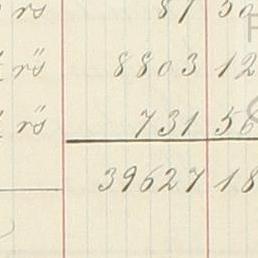 rs 81 50
rs 8803 12
rs 731 56
39627 18